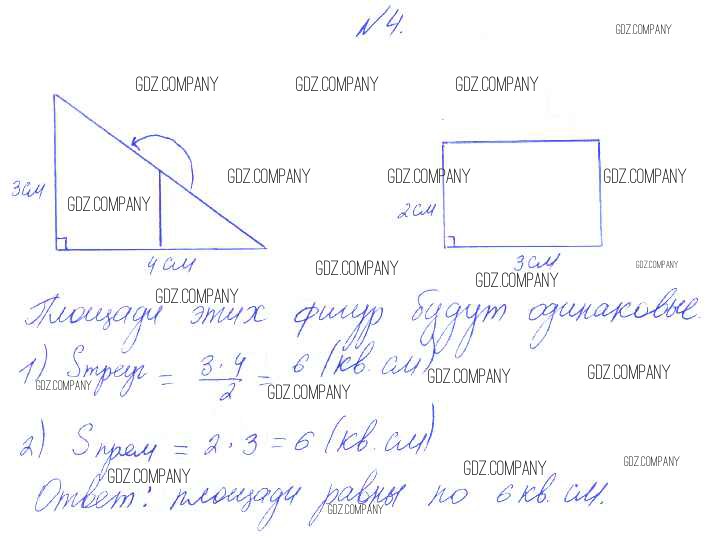 №4.
GDZ.COMPANY
GDZ.COMPANY GDZ.COMPANY GDZ.COMPANY
3см
GDZ.COMPANY
GDZ.COMPANY GDZ.COMPANY GDZ.COMPANY
2см
4 см
3см
GDZ.COMPANY GDZ.COMPANY GDZ.COMPANY
GDZ.COMPANY
Площади этих фигур будут одинаковые.
1) Sтреуг = 3·4/2 = 6 (кв. см)
GDZ.COMPANY GDZ.COMPANY GDZ.COMPANY GDZ.COMPANY
2) Sпрям = 2·3 = 6 (кв. см)
GDZ.COMPANY GDZ.COMPANY GDZ.COMPANY
Ответ: площади равны по 6 кв. см.
GDZ.COMPANY